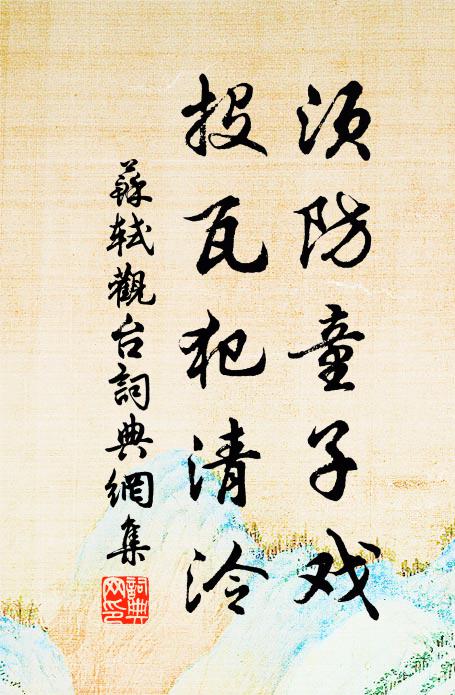 须防童子戏
投瓦犯清泠
蘇軾觀台詞典網集
詞典网印